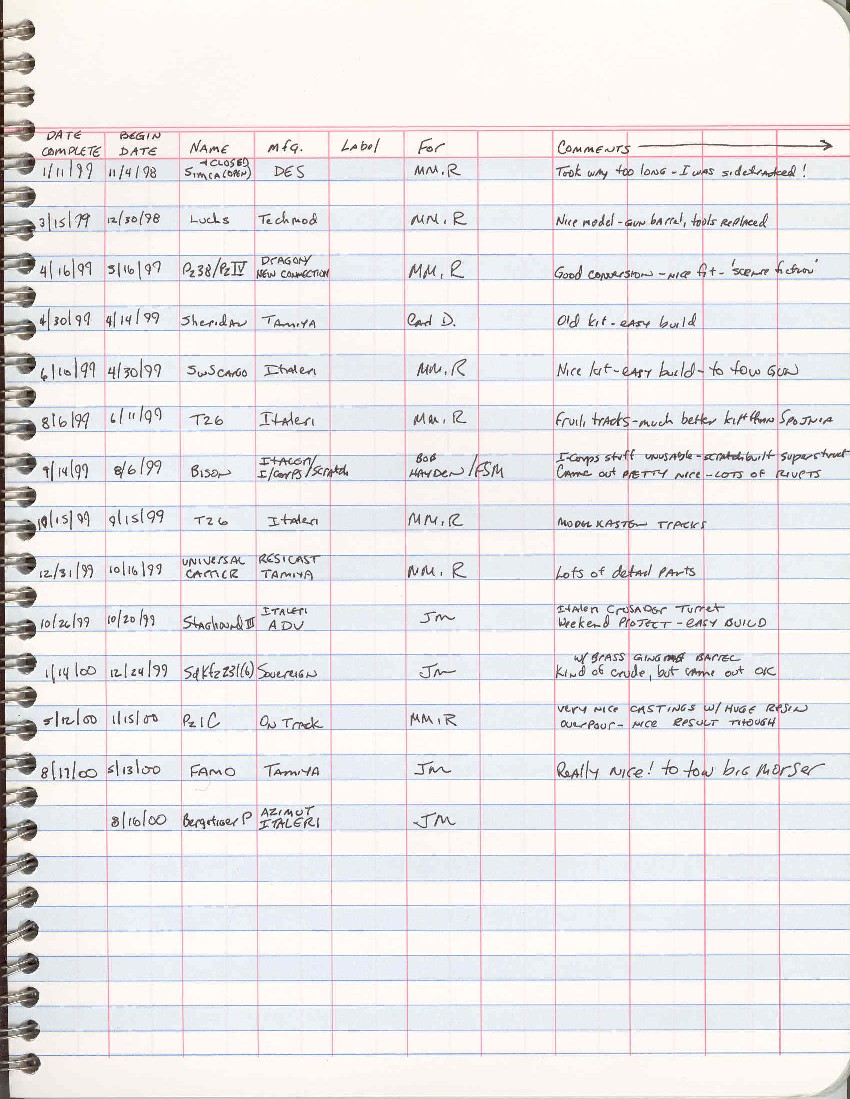 DATE COMPLETE BEGIN DATE NAME Mfg. Label For COMMENTS
1/11/99 11/4/98 SIMCA (OPEN) + CLOSED DES MM.R Took way too long - I was sidetracked!
3/15/99 12/30/98 Luchs Techmod MM.R Nice model - gun barrel, tools replaced
4/16/99 3/16/99 Pz38/PzIV DRAGON/ NEW CONNECTION MM.R Good conversion - nice fit - 'science fiction'
4/30/99 4/14/99 Sheridan TAMIYA Carl D. Old kit - easy build
6/10/99 4/30/99 SWS CARGO Italeri MM.R Nice kit - easy build - to tow GUN
8/6/99 6/11/99 T26 Italeri MM.R Fruil tracks - much better kit than
9/14/99 8/6/99 BISON ITALERI/ I/CORPS/Scratch BOB HAYDEN/FSM I-Corps stuff unusable - scratchbuilt superstruct
Came out PRETTY NICE - LOTS OF RIVETS
10/15/99 9/15/99 T26 Italeri MM.R MODEL KASTEN TRACKS
12/31/99 10/16/99 UNIVERSAL CARRIER RESICAST TAMIYA MM.R Lots of detail parts
10/26/99 10/20/99 Staghound III ITALERI ADV JM Italeri Crusader Turret
Weekend PROJECT - EASY BUILD
1/14/00 12/24/99 SdKfz 231(6) SOVEREIGN JM W/ BRASS BARREL
Kind of crude, but came out OK
5/12/00 1/15/00 Pz1C On Track MM.R VERY NICE CASTINGS W/ HUGE RESIN
OVERPOUR - NICE RESULT THOUGH
8/17/00 5/13/00 FAMO TAMIYA JM Really Nice! to tow big Morser
8/16/00 Bergetiger P AZIMUT ITALERI JM